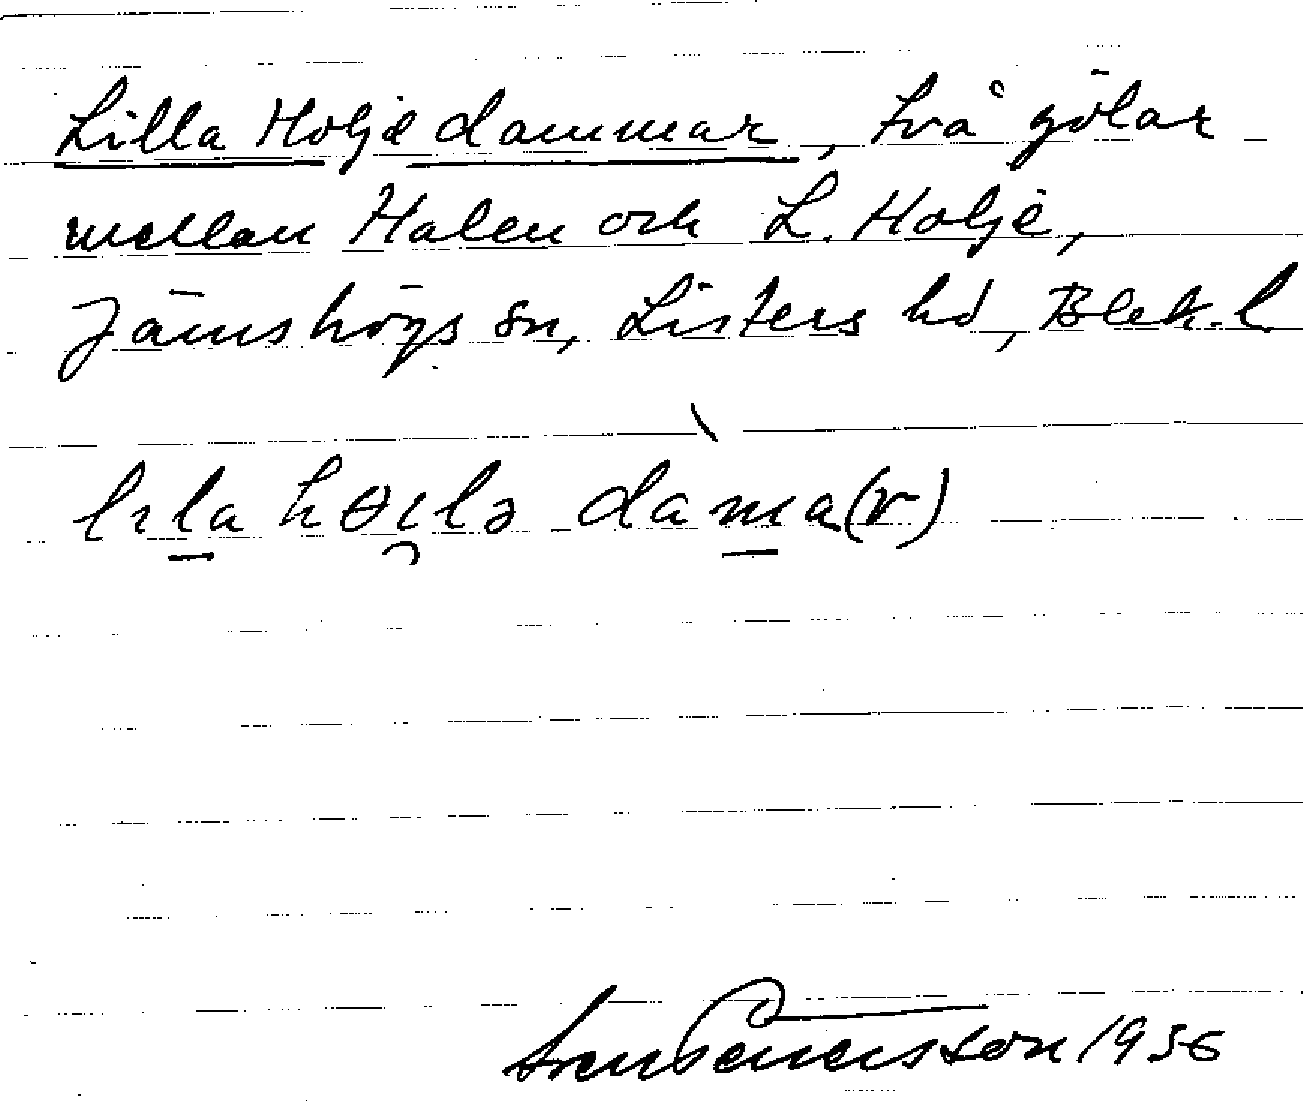 Lilla Holje dammar, två gölar
mellan Halen och L. Holje,
Jämshögs sn, Listers hd, Blek. l.
lıla hɵı̯lə dama(r)
1956